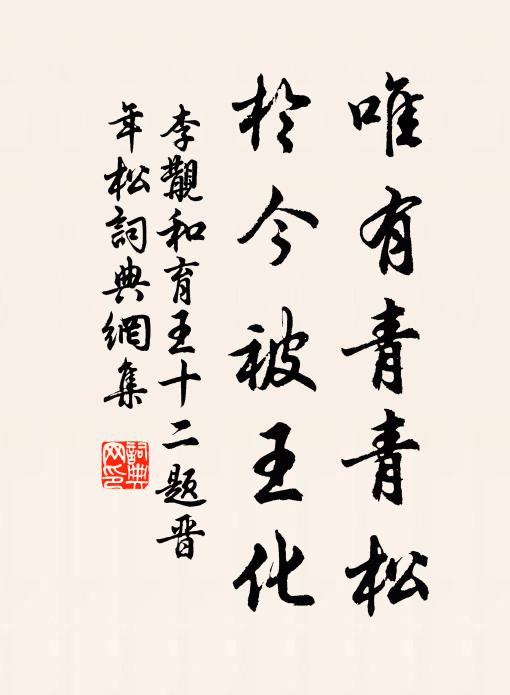 唯有青青松
於今被王化
李觀和育王十二題晉
年松詞典網集
詞典
网印